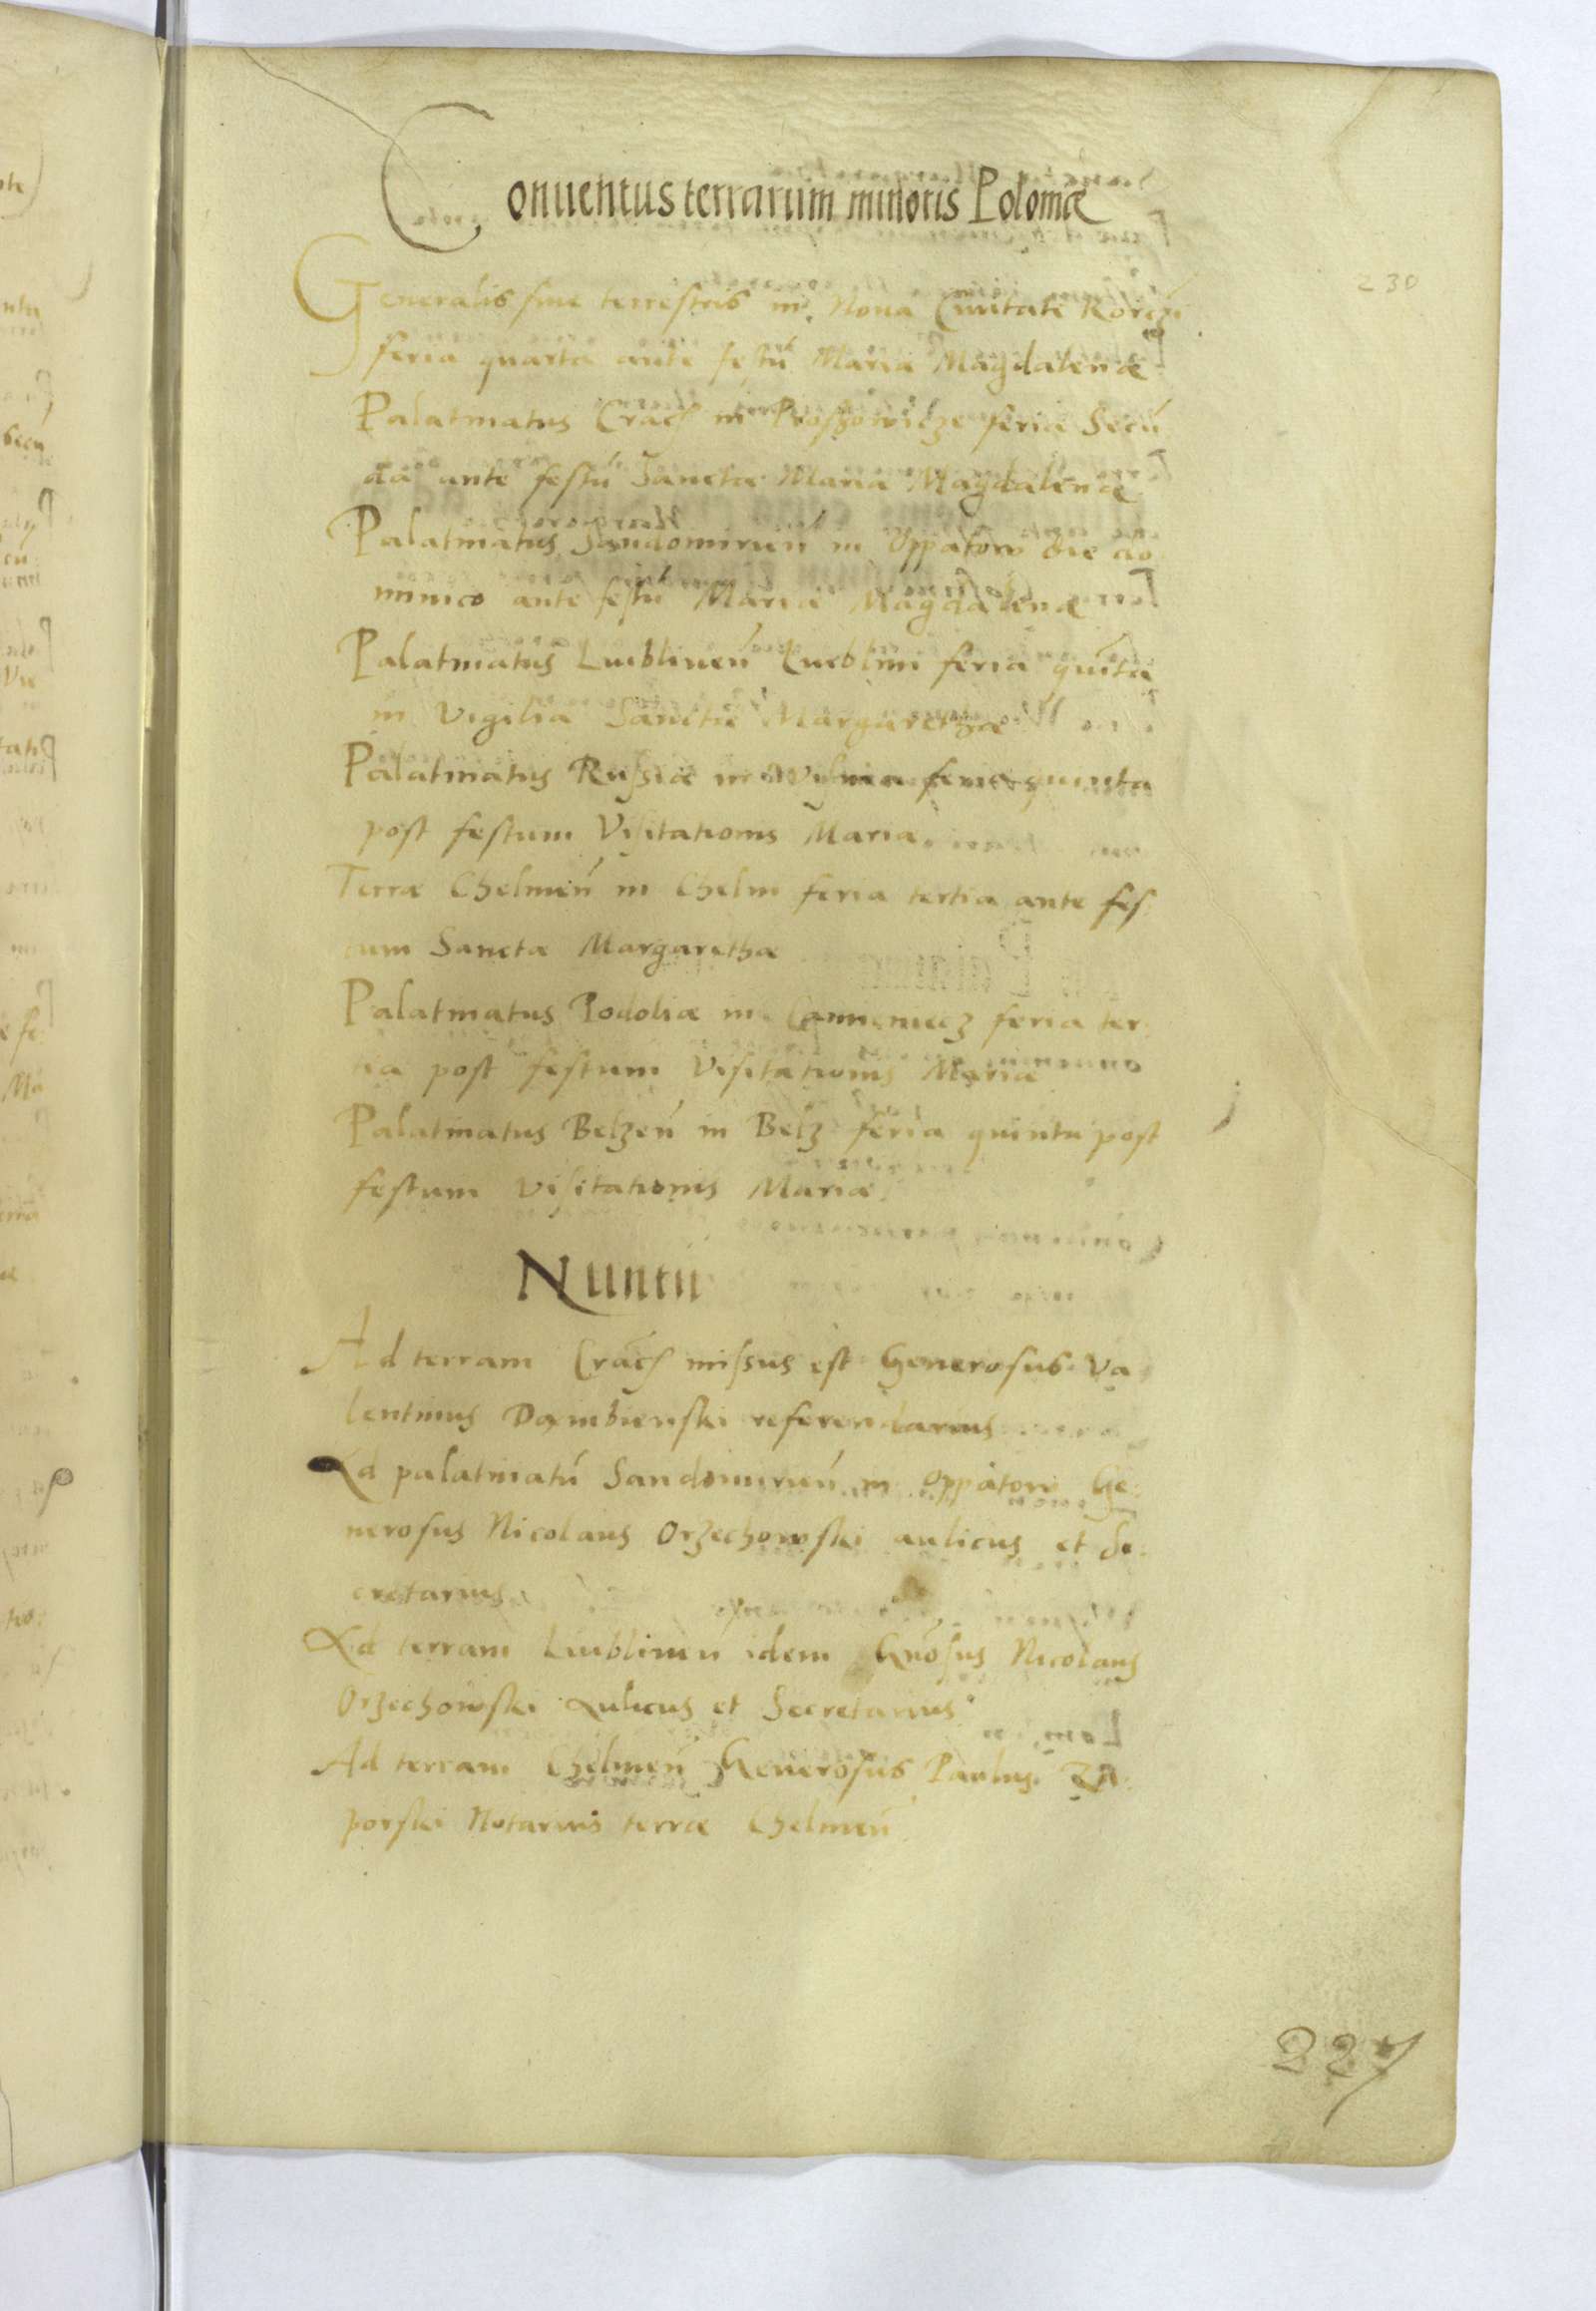 Conuentus terrarum minoris Poloniæ
230
Generalis siue terrestris in Noua Ciuitate Korczin
feria quarta ante festū Maria Magdalenæ
Palatinatus Crac̄ in Proszowicze feria Secū
da ante festū Sanctæ Maria Magdalenæ
Palatinatus Sandomirieñ in Oppatow die do
minico ante festū Mariæ Magdalenæ
Palatinatus Lublineñ Lueblini feria quīta
in Vigilia Sanctæ Margarethæ
Palatinatus Russiæ in feria quinta
post festum Visitationis Maria
Terræ Chelmeñ in Chelm feria tertia ante fes
tum Sanctæ Margarethæ
Palatinatus Podoliæ in Cameniecz feria ter
tia post festum Visitationis Mariæ
Palatinatus Belzeñ in Belz feria quinta post
festum Visitationis Mariæ
Nuntii
Ad terram Crac̄ missus est Generosus Va
lentinus Dambienski referendarius
Ad palatinatū Sandomirieñ in Oppatow Ge
nerosus Nicolaus Orzechowski aulicus et Se
cretarius
Ad terram Lublineñ idem Gnōsus Nicolaus
Orzechowski Aulicus et Secretarius
Ad terram Chelmeñ Generosus Paulus
porski Notarius terræ Chelmeñ
227